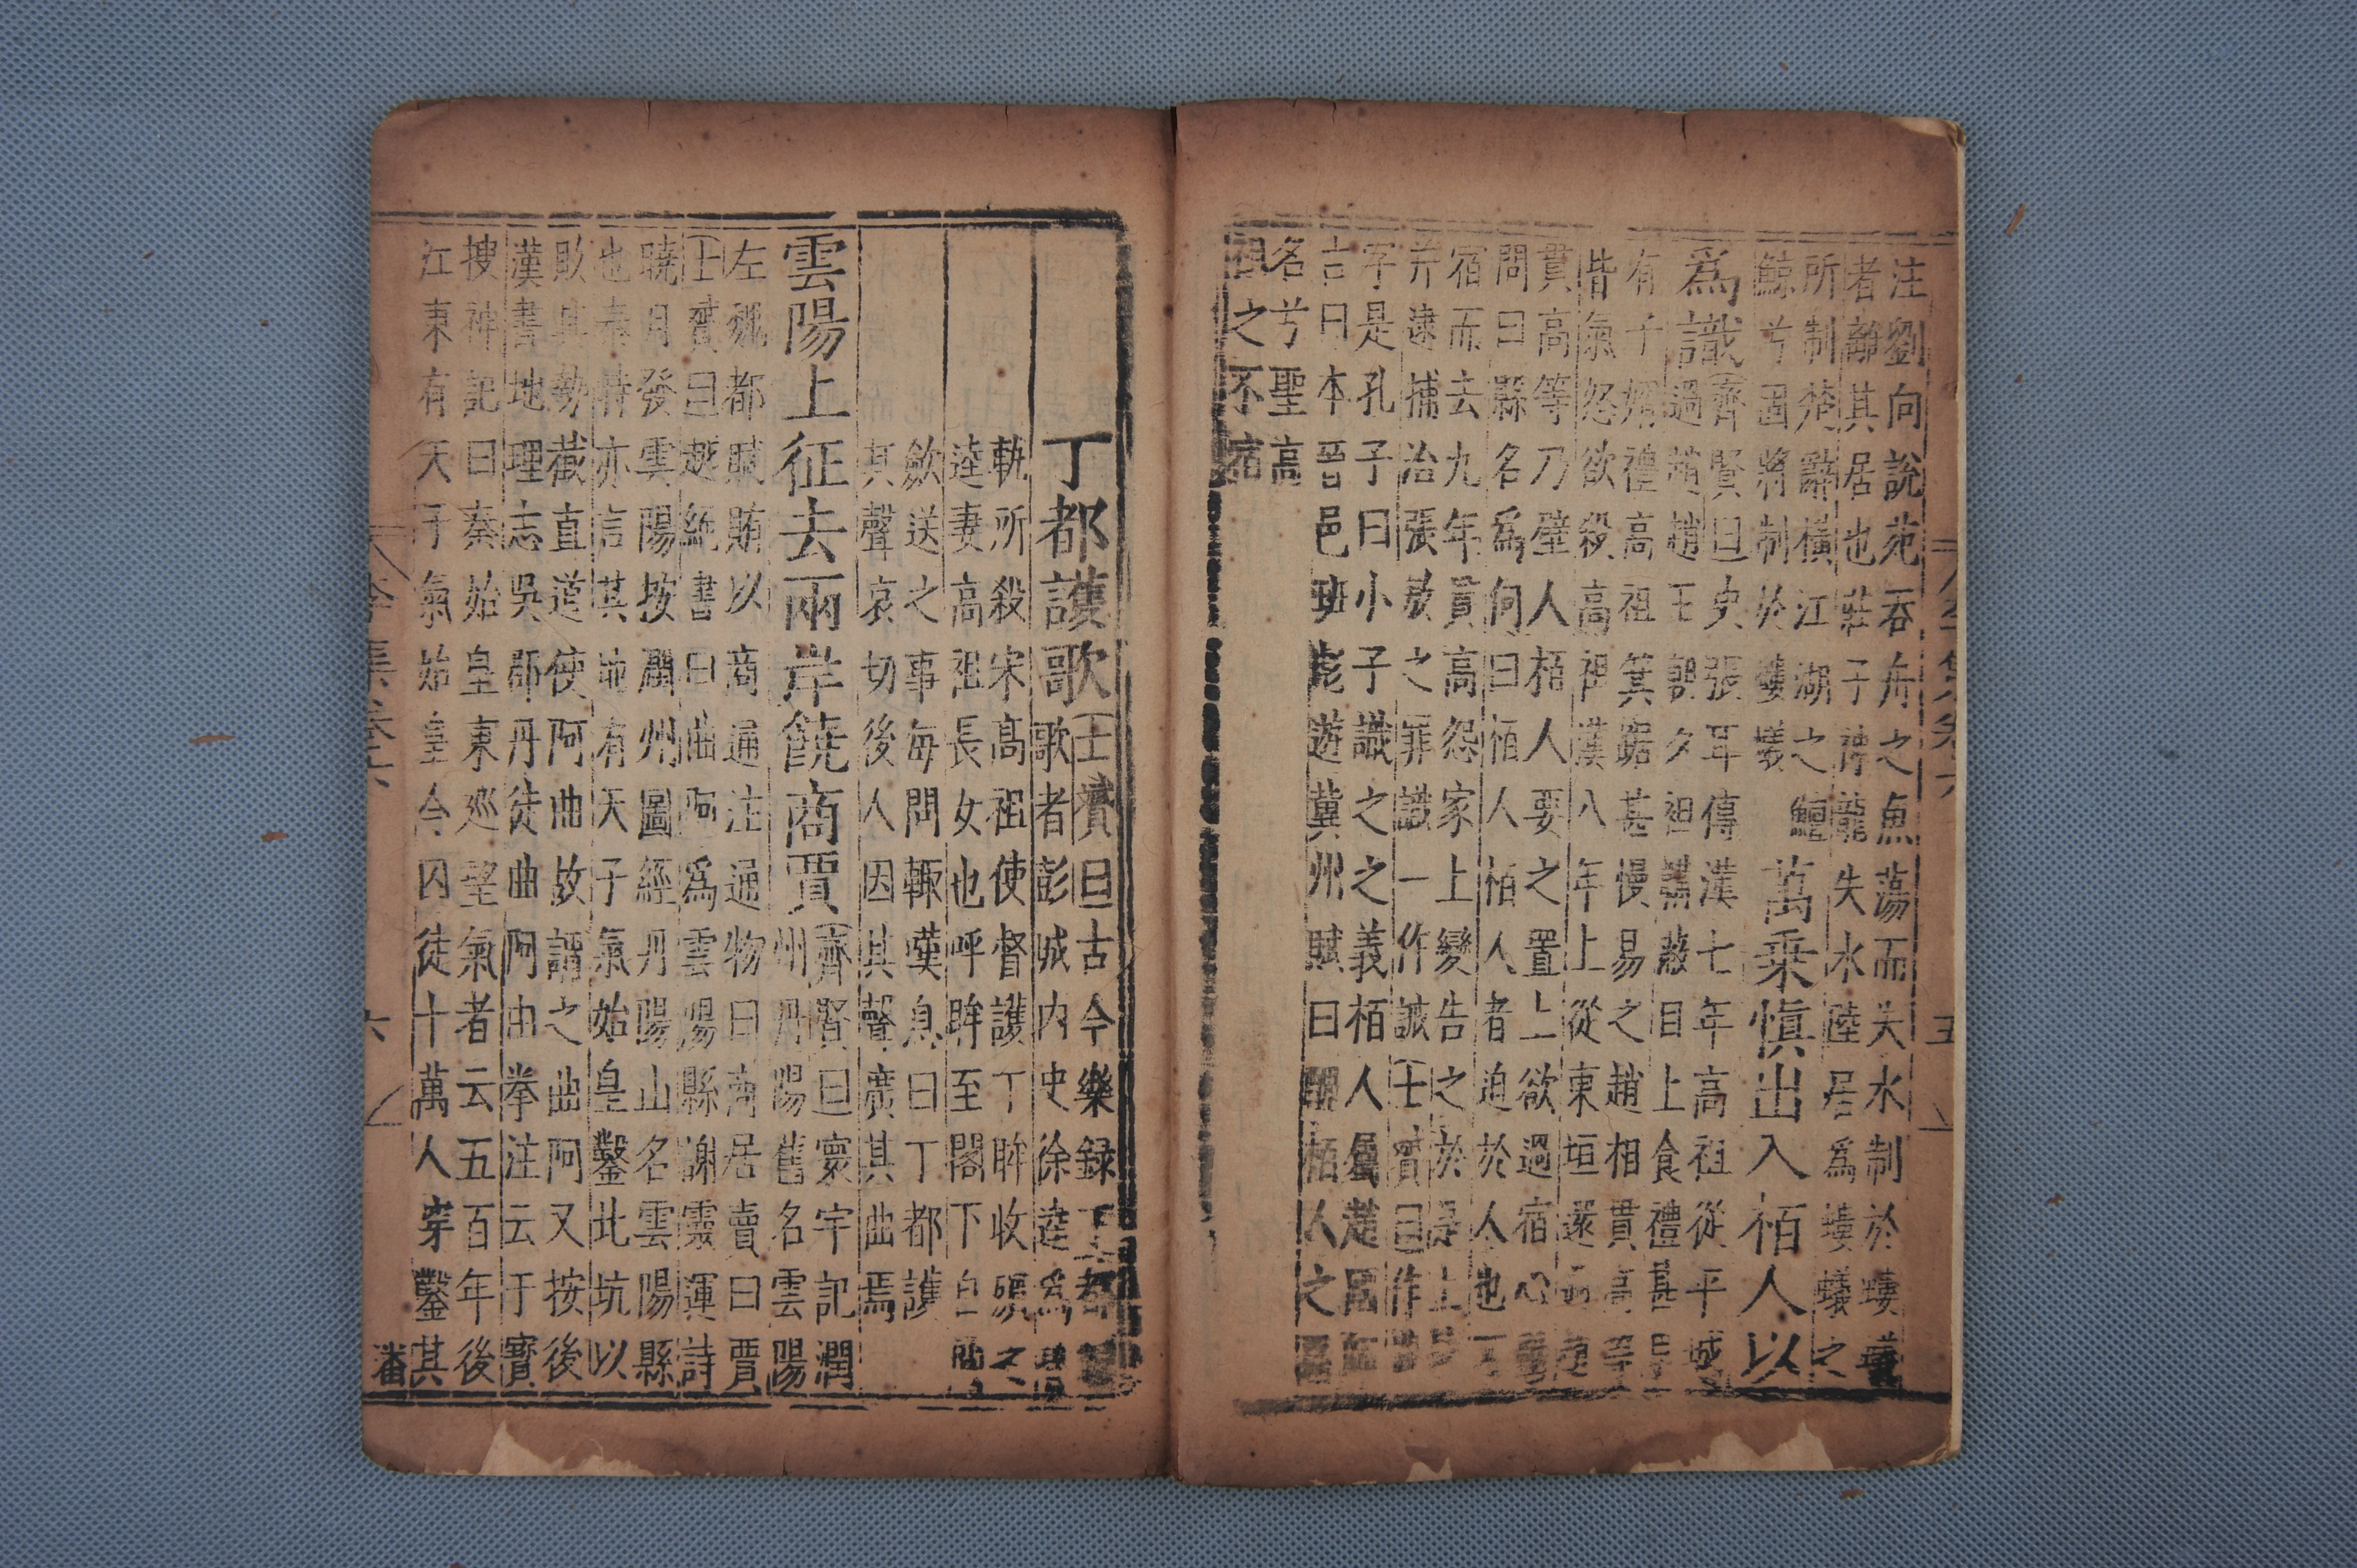 注劉向說苑吞舟之魚蕩而失水制於螻蟻
者離其居也莊子神龍失水陸居為螻蟻之
所制楚辭橫江湖之鱣
鯨兮固將制於螻蟻
萬乗慎出入栢人以
為識
齊賢曰史張耳傳漢七年高祖從平城
過趙趙王朝夕袒韝蔽自上食禮甚
有子壻禮高祖箕踞甚慢易之趙相貫高等
皆氣怨欲殺高祖漢八年上從東垣還
貫高等乃壁人栢人要之置上欲過宿心
問曰縣名爲何曰栢人栢人者迫於人也不
宿而去九年貫高怨家上變告之於是上
并逮捕治張敖之罪識一作誡士贇曰作
字是孔子曰小子識之之義栢人屬趙
言曰本晉邑班彪遊冀州賦曰 栢人之
名兮聖高
祖之不宿
五
丁都護歌
士贇曰古今樂録丁都
歌者彭城内史徐逵爲
軌所殺宋高祖使督護丁旿收殯之
逵妻高祖長女也呼旿至閤下自
歛送之事每問輒嘆息曰丁都護
其聲哀切後人因其聲廣其曲焉
雲陽上征去兩岸饒商賈
齊賢曰寰宇記潤
州丹陽舊名雲陽
左魏都賦賄以商通注通物曰商居賣曰賈
士贇曰越絶書曰曲阿爲雲陽縣謝靈運詩
曉月發雲陽按潤州圖經丹陽山名雲陽縣
也秦時亦言其地有天子氣始皇鑿此坑以
敗其勢截直道使阿曲故謂之曲阿又按後
漢書地理志吳郡丹徒曲阿由拳注云于寳
搜神記曰秦始皇東巡望氣者云五百年後
江東有天子氣始皇令囚徒十萬人穿鑿其
六